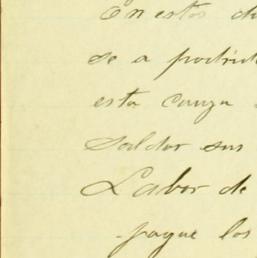 En estos
se a
esta cauza
Saldar sus
Labor de
pague los